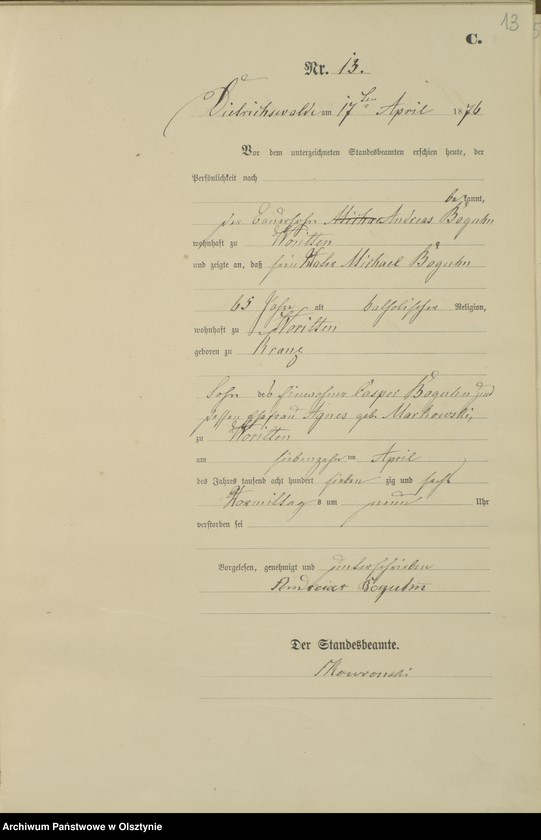 13
C.
Nr. 13.
Dietrichswalde am 17ten April 1876
Vor dem unterzeichneten Standesbeamten erschien heute, der
Persönlichkeit nach
bekannt,
der Bauersohn Michae Andreas Boguhn
wohnhaft zu Woritten
und zeigte an, daß sein Vater Michael Boguhn
65 Jahr alt katholischer Religion,
wohnhaft zu Woritten
geboren zu Kranz
Sohn des Einwohner Casper Boguhn und
dessen Ehefrau Agnes geb. Markowski,
zu Woritten
am siebenzehn ten April
des Jahres tausend acht hundert sieben zig und sechs
Vormittag s um neun Uhr
verstorben sei
Vorgelesen, genehmigt und unterschrieben
Andreias Boguhn
Der Standesbeamte.
Skowronski
Archiwum Państwowe w Olsztynie